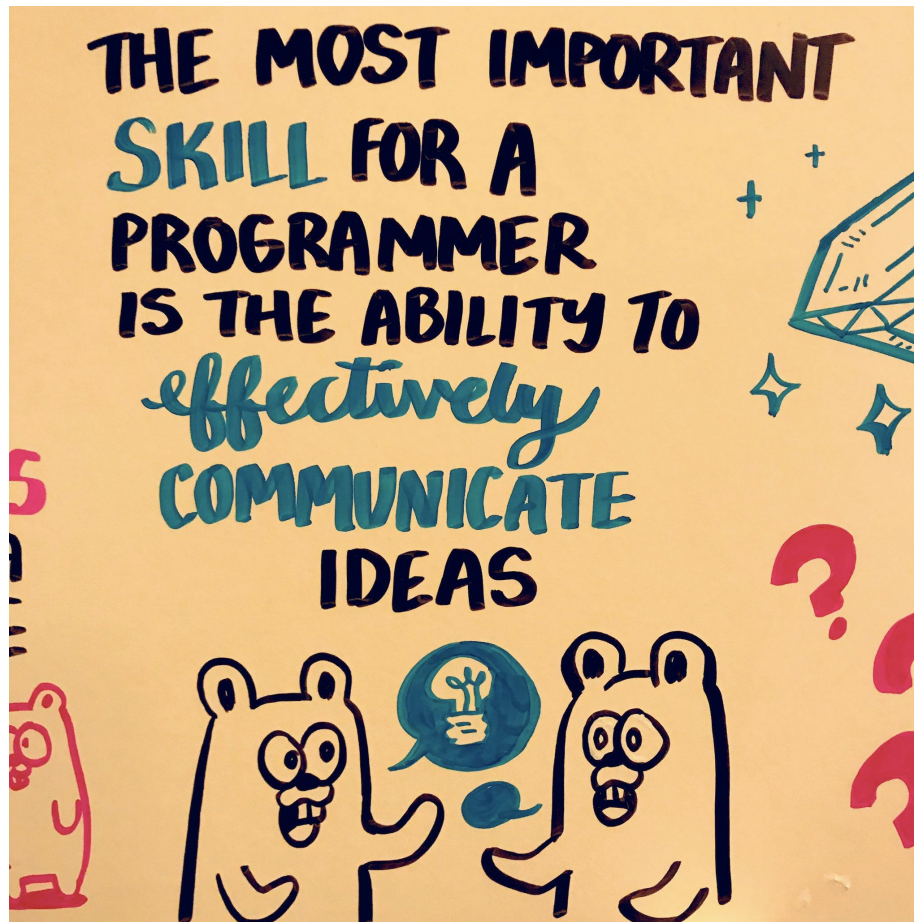 THE MOST IMPORTANT
SKILL FOR A
PROGRAMMER
IS THE ABILITY TO
effectively
COMMUNICATE
IDEAS
?
?
?